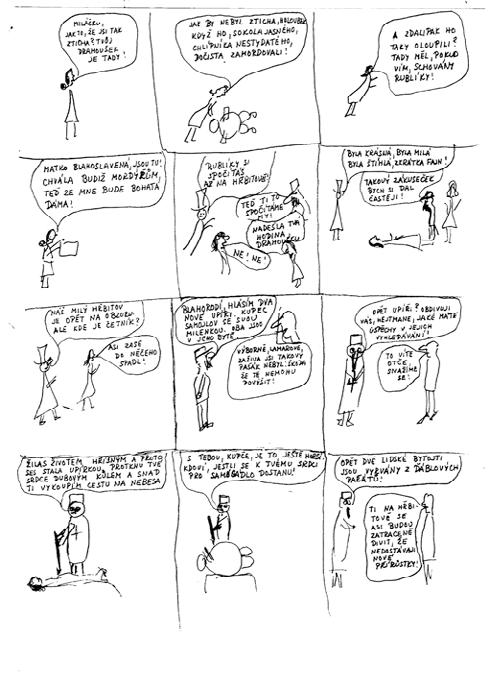 MILÁČKU,
JAK TO, ŽE JSI TAK
ZTICHA? TVŮJ
DRAHOUŠEK
JE TADY!
JAK BY NEBYL ZTICHA, HOLOUBEK
KDYŽ HO, SOKOLA JASNÉHO,
CHLÍPNÍKA NESTYDATÉHO,
DOČISTA ZAMORDOVALI!
A ZDALIPAK HO
TAKY OLOUPILI?
TADY MĚL, POKUD
VÍM, SCHOVÁNY
RUBLÍKY!
MATKO BLAHOSLAVENÁ, JSOU TU!
CHVÁLA BUDIŽ MORDÝŘŮM,
TEĎ ZE MNE BUDE BOHATÁ
DÁMA!
RUBLÍKY SI
SPOČÍTÁŠ
AŽ NA HŘBITOVĚ!
TEĎ TI TO
SPOČÍTÁME
MY!
NADEŠLA TVÁ
HODINA,
DRAHOUŠKU!
NE! NE!
BYLA KRÁSNÁ, BYLA MILÁ
BYLA ŠTÍHLÁ, ZKRÁTKA FAJN!
TAKOVÝ ZÁKUSEČEK
BYCH SI DAL
ČASTĚJI!
NÁŠ MILÝ HŘBITOV
JE OPĚT NA OBZORU
ALE KDE JE ČETNÍK?
ASI ZASE
DO NĚČEHO
SPADL!
BLAHORODÍ, HLÁSÍM DVA
NOVÉ UPÍRY. KUPEC
SAMOJLOV SE SVOJÍ
MILENKOU. OBA JSOU
V JEHO BYTĚ
VÝBORNĚ, LAMAROVE,
ŠKODA
ŽE TĚ NEMOHU
POVÝŠIT!
OPĚT UPÍŘI? OBDIVUJI
VÁS, HEJTMANE, JAKÉ MÁTE
ÚSPĚCHY V JEJICH
VYHLEDÁVÁNÍ!
TO VÍTE
OTČE,
SNAŽÍME
SE!
ŽILAS ŽIVOTEM HŘÍŠNÝM A PROTO
SES STALA UPÍRKOU. PROTKNU TVÉ
SRDCE DUBOVÝM KŮLEM A SNAD
TI VYKOUPÍM CESTU NA NEBESA
S TEBOU, KUPČE, JE TO JEŠTĚ HORŠÍ
KDOVÍ, JESTLI SE K TVÉMU SRDCI
PRO SAMÉ SÁDLO DOSTANU!
OPĚT DVĚ LIDSKÉ BYTOSTI
JSOU VYRVÁNY Z ĎÁBLOVÝCH
PAŘÁTŮ!
TI NA HŘBI-
TOVĚ SE
ASI BUDOU
ZATRACENĚ
DIVIT, ŽE
NEDOSTÁVAJÍ
NOVÉ
PŘÍRŮSTKY!